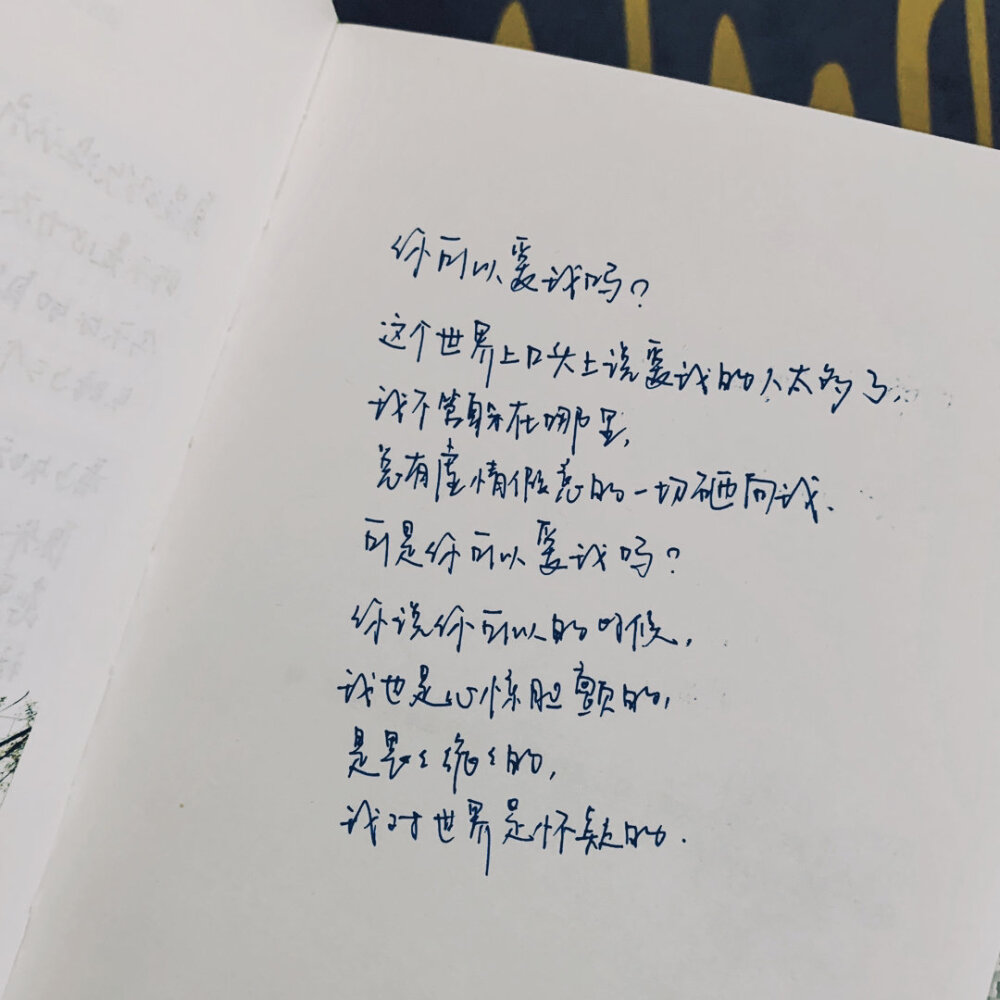 你可以爱我吗？
这个世界上口头上说爱我的人太多了，
我不管躲在哪里，
总有虚情假意的一切砸向我、
可是你可以爱我吗？
你说你可以的时候，
我也是心惊胆颤的，
是畏畏缩缩的，
我对世界是怀疑的.